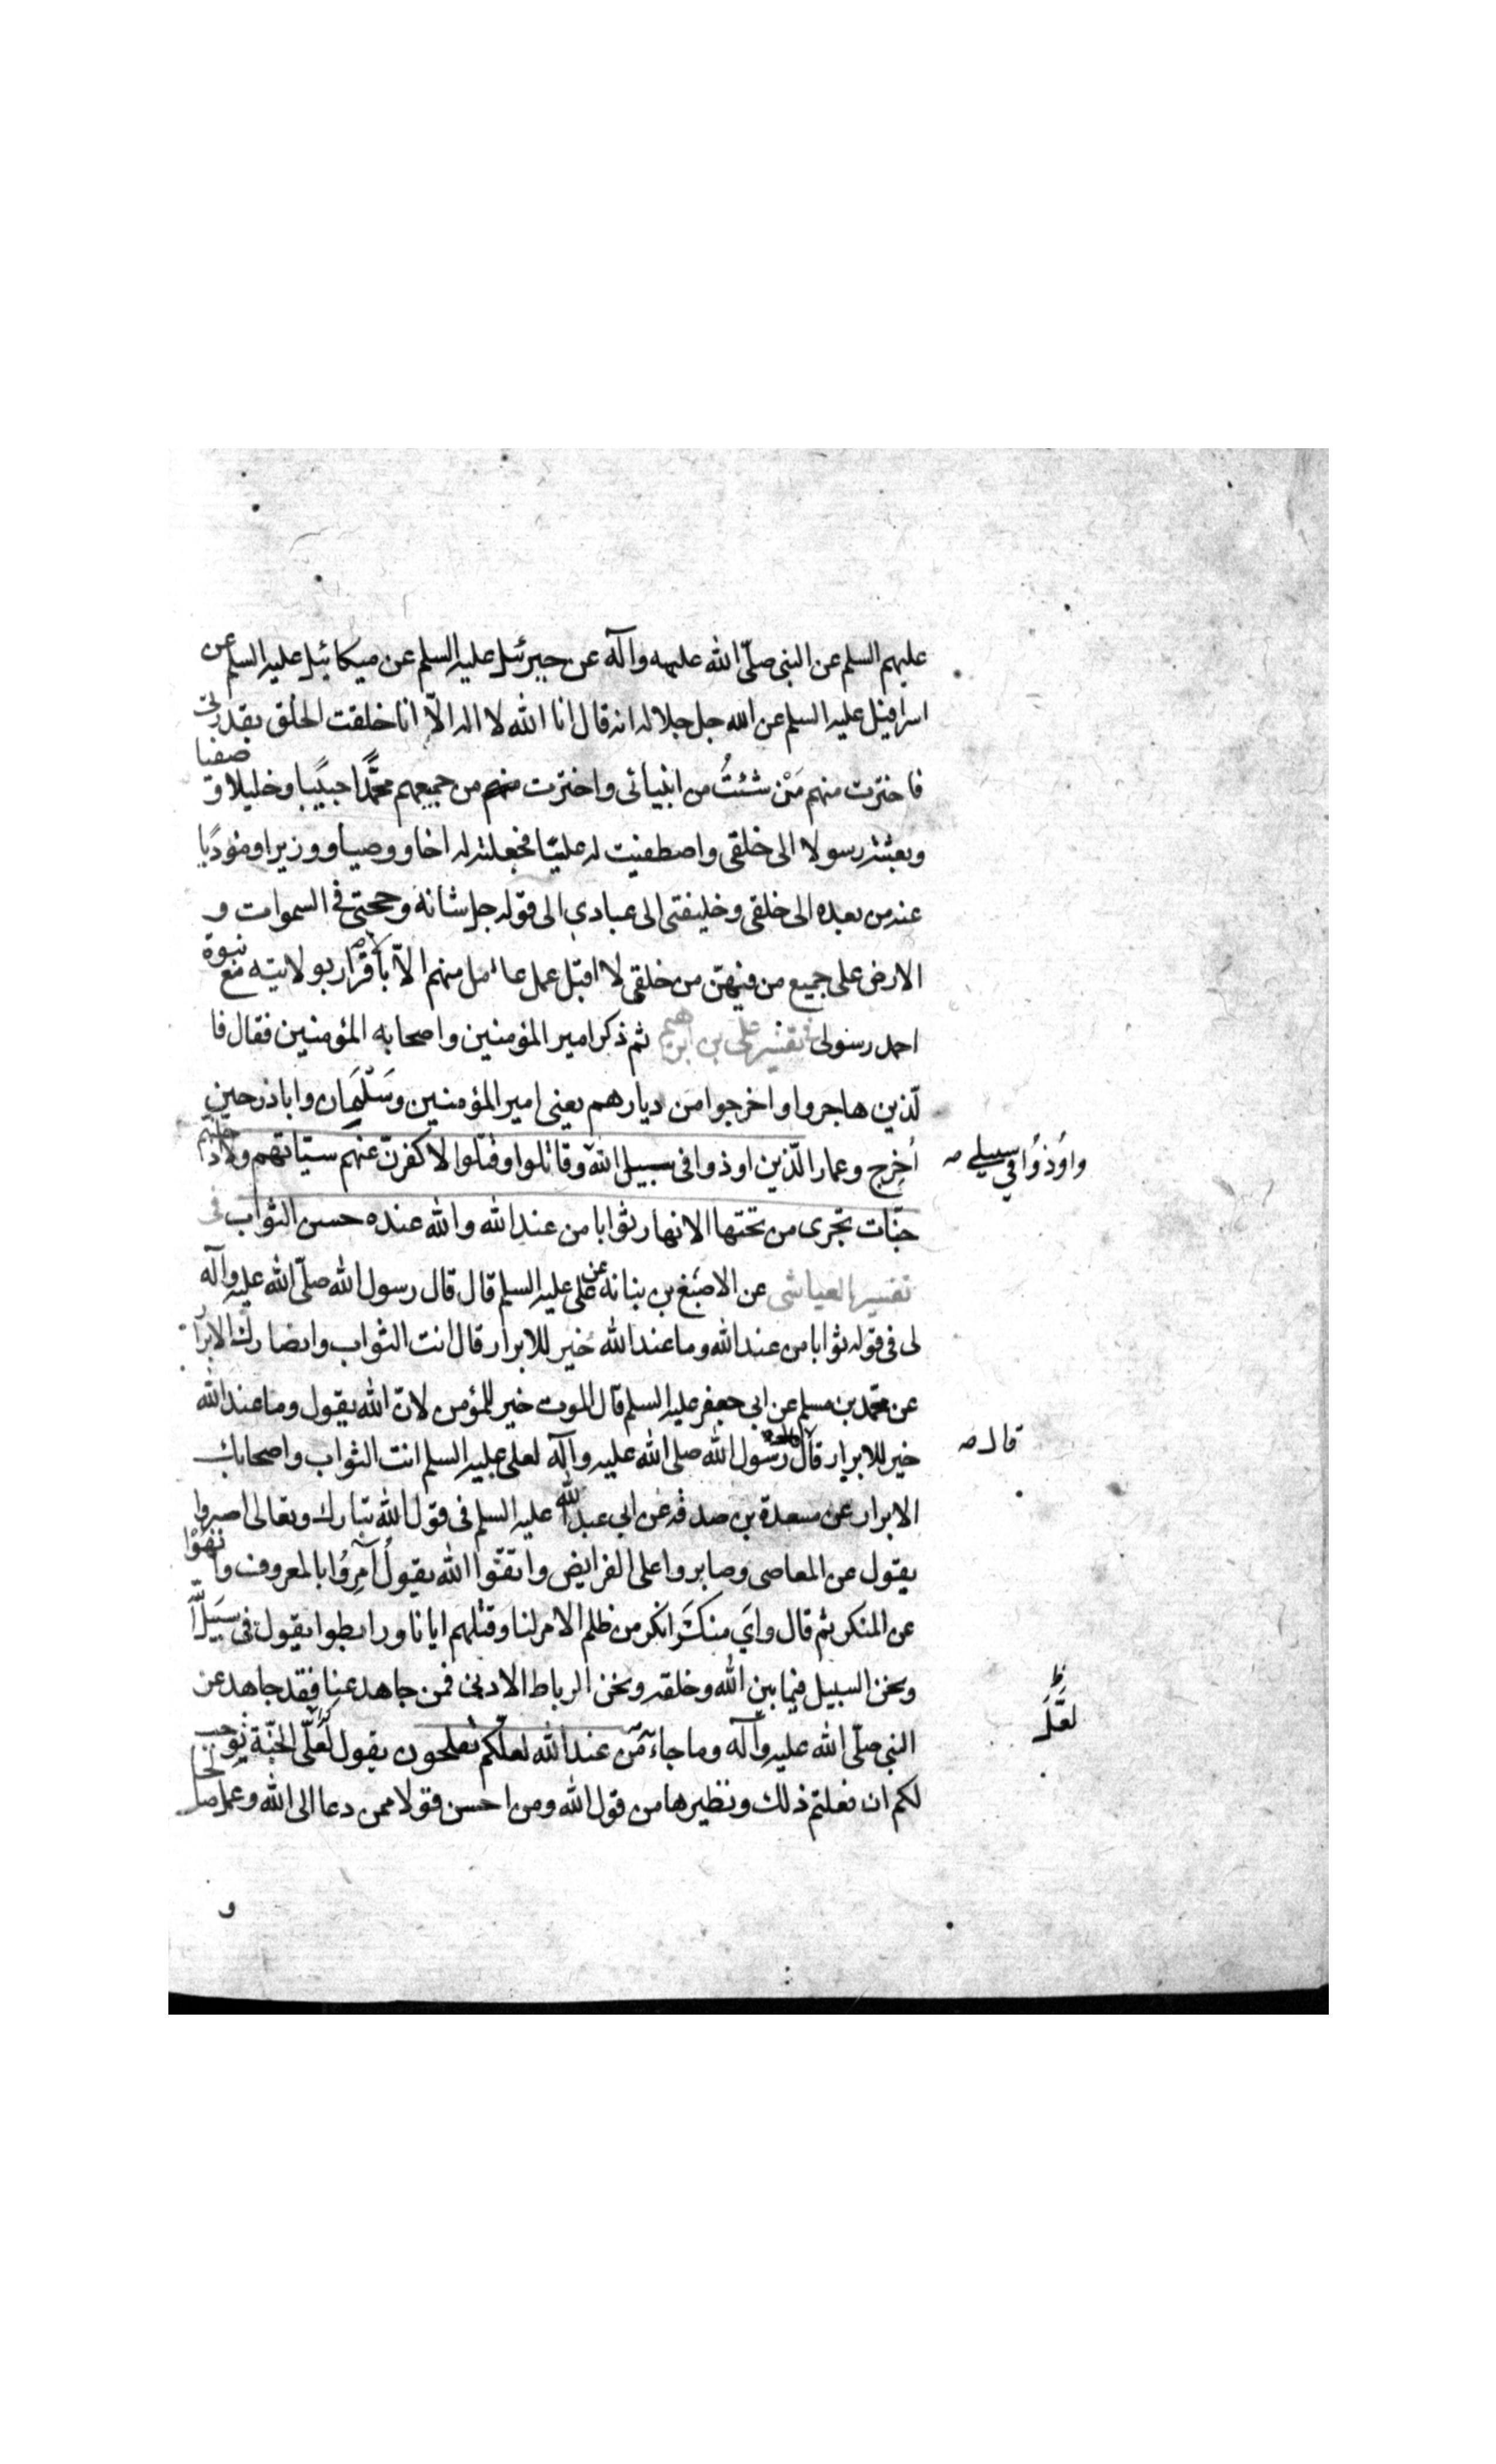 عليهم السلم عن النبى صلّى الله عليه وآله عن جبرئيل عليه السلم عن ميكائيل عليه السلم عن
اسرافيل عليه السلم عن الله جل جلاله انه قال انا الله لا اله الّا انا خلقت الخلق بقدرتى
فاخترت منهم مَنْ شئتُ من انبيائى واخترت منهم من جميعهم محمّدًا حبيبًا وخليلا و صفيا
وبعثته رسولا الى خلقى واصطفيت له عليّا فجعلته له اخا ووصيا ووزيرا ومؤديًا
عنه من بعده الى خلقى وخليفتى الى عبادى الى قوله جل شانه وحجتى فى السموات و
الارض على جميع من فيهنّ من خلقى لا اقبل عمل عامل منهم الّا بالاقرار بولايته مع نبوة
احمد رسولى فى تفسير على بن ابرهيم ثم ذكر امير المؤمنين واصحابه المؤمنين فقال فا
لّذين هاجروا واخرجوا من ديارهم يعنى امير المؤمنين وسَلْمَان واباذر حين
اُخرِج وعمار الّذين اوذوا فى سبيل الله وقاتلوا وقتلوا لاكفرنّ عنهم سيّاتهم ولاد خلنهم
واُوذُوا في سبيلي صه
جنّات تجرى من تحتها الانهار ثوابا من عند الله والله عنده حسن الثواب فى
تفسير العياشى عن الاصبغ بن نباته عن على عليه السلم قال قال رسول الله صلّى الله عليه وآله
لى فى قوله ثوابا من عند الله وما عند الله خير للابرار قال انت الثواب وانصارك الابرار
عن محمد بن مسلم عن ابى جعفر عليه السلم قال الموت خير للمؤمن لانّ الله يقول وما عند الله
خير للابرار قال رسول الله صلى الله عليه وآله لعلى عليه السلم انت الثواب واصحابك
قال صه
الابرار عن مسعدة بن صدقه عن ابي عبد الله عليه السلم فى قول الله تبارك وتعالى اصبروا
يقول عن المعاصى وصابروا على الفرايض واتقوا الله يقول آمِرُوا بالمعروف وانهَوْا
عن المنكر ثم قال واي منكَر انكر من ظلم الامر لنا وقتلهم ايانا ورابطوا يقول فى سَبيل الله
ونحن السبيل فيما بين الله وخلقه ونحن الرباط الادنى فمن جاهد عنا فقد جاهد عن
النبى صلّى الله عليه وآله وما جاء من عند الله لعلّكم تفلحون يقول لَعَلّى الجنّة توجب
لَعَلَّ ظ
لكم ان فعلتم ذلك ونظيرها من قول الله ومن احسن قولا ممن دعا الى الله وعمل صالحا
و